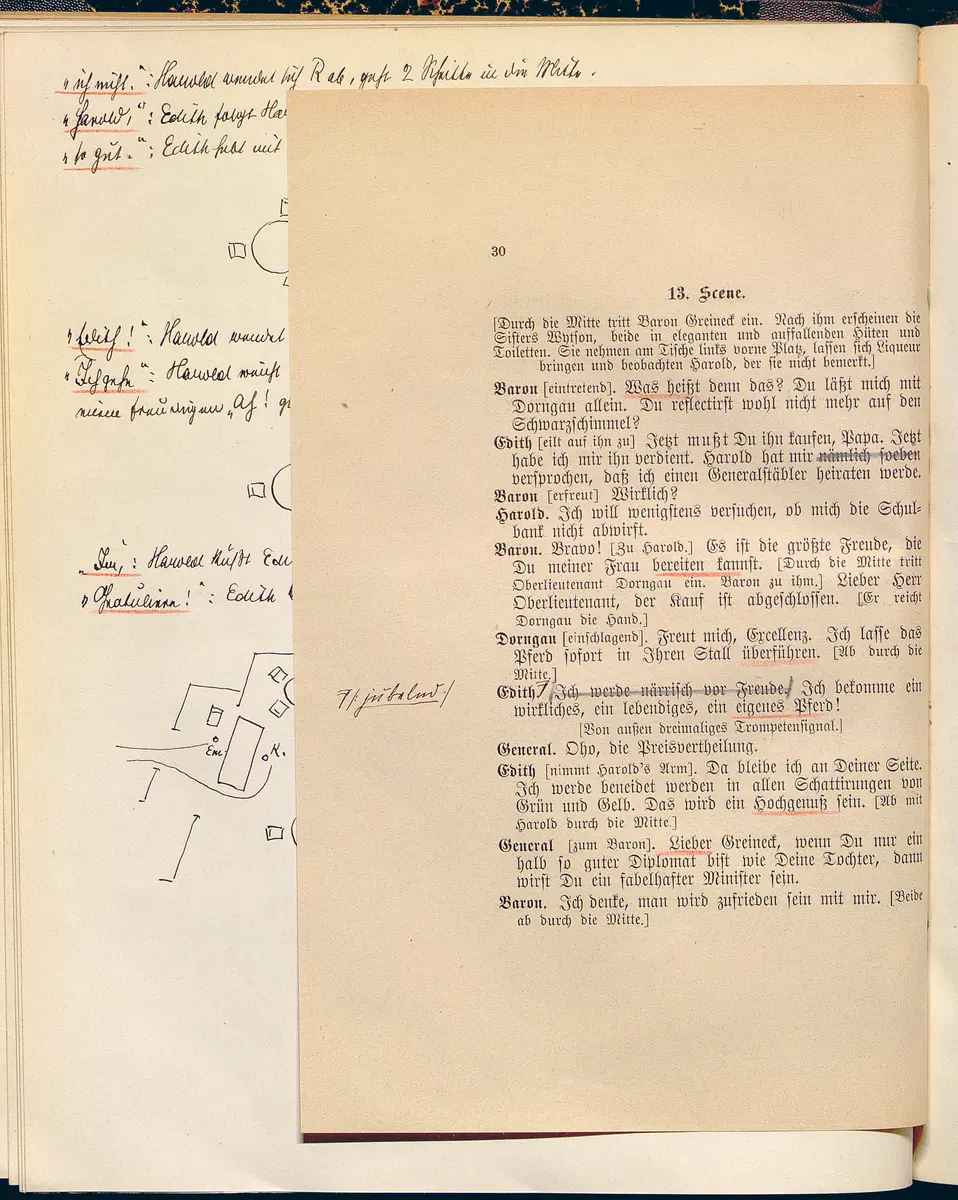 „ich nicht.“: Harold wendet sich R ab, geht 2 Schritte in die Mitte.
„Harold,“: Edith folgt Ha
„so gut.“: Edith hebt mit
„Edith!“: Harold wendet
„Ich gehe“: Harold
„Ah!
„Im,: Harold küßt Edi
„Gratuliere!“: Edith
Em.
K.
30
13. Scene.
[Durch die Mitte tritt Baron Greineck ein. Nach ihm erscheinen die
Sisters Wytson, beide in eleganten und auffallenden Hüten und
Toiletten. Sie nehmen am Tische links vorne Platz, lassen sich Liqueur
bringen und beobachten Harold, der sie nicht bemerkt.]
Baron [eintretend]. Was heißt denn das? Du läßt mich mit
Dorngau allein. Du reflectirst wohl nicht mehr auf den
Schwarzschimmel?
Edith [eilt auf ihn zu] Jetzt mußt Du ihn kaufen, Papa. Jetzt
habe ich mir ihn verdient. Harold hat mir nämlich soeben
versprochen, daß ich einen Generalstäbler heiraten werde.
Baron [erfreut] Wirklich?
Harold. Ich will wenigstens versuchen, ob mich die Schul-
bank nicht abwirft.
Baron. Bravo! [Zu Harold.] Es ist die größte Freude, die
Du meiner Frau bereiten kannst. [Durch die Mitte tritt
Oberlieutenant Dorngau ein. Baron zu ihm.] Lieber Herr
Oberlieutenant, der Kauf ist abgeschlossen. [Er reicht
Dorngau die Hand.]
Dorngau [einschlagend]. Freut mich, Excellenz. Ich lasse das
Pferd sofort in Ihren Stall überführen. [Ab durch die
Mitte.]
/: jubelnd :/
Edith Ich werde närrisch vor Freude. Ich bekomme ein
wirkliches, ein lebendiges, ein eigenes Pferd!
[Von außen dreimaliges Trompetensignal.]
General. Oho, die Preisvertheilung.
Edith [nimmt Harold's Arm]. Da bleibe ich an Deiner Seite.
Ich werde beneidet werden in allen Schattirungen von
Grün und Gelb. Das wird ein Hochgenuß sein. [Ab mit
Harold durch die Mitte.]
General [zum Baron]. Lieber Greineck, wenn Du nur ein
halb so guter Diplomat bist wie Deine Tochter, dann
wirst Du ein fabelhafter Minister sein.
Baron. Ich denke, man wird zufrieden sein mit mir. [Beide
ab durch die Mitte.]